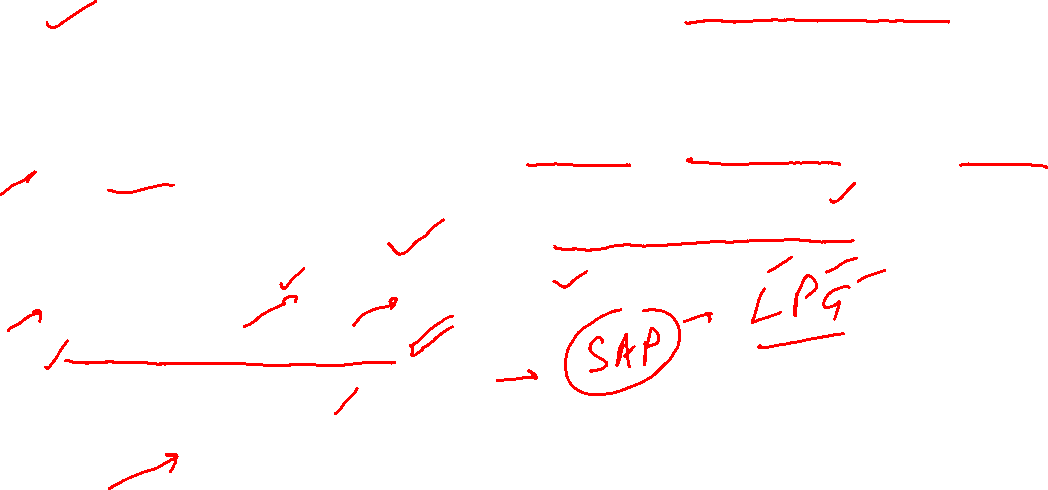 SAP → LPG